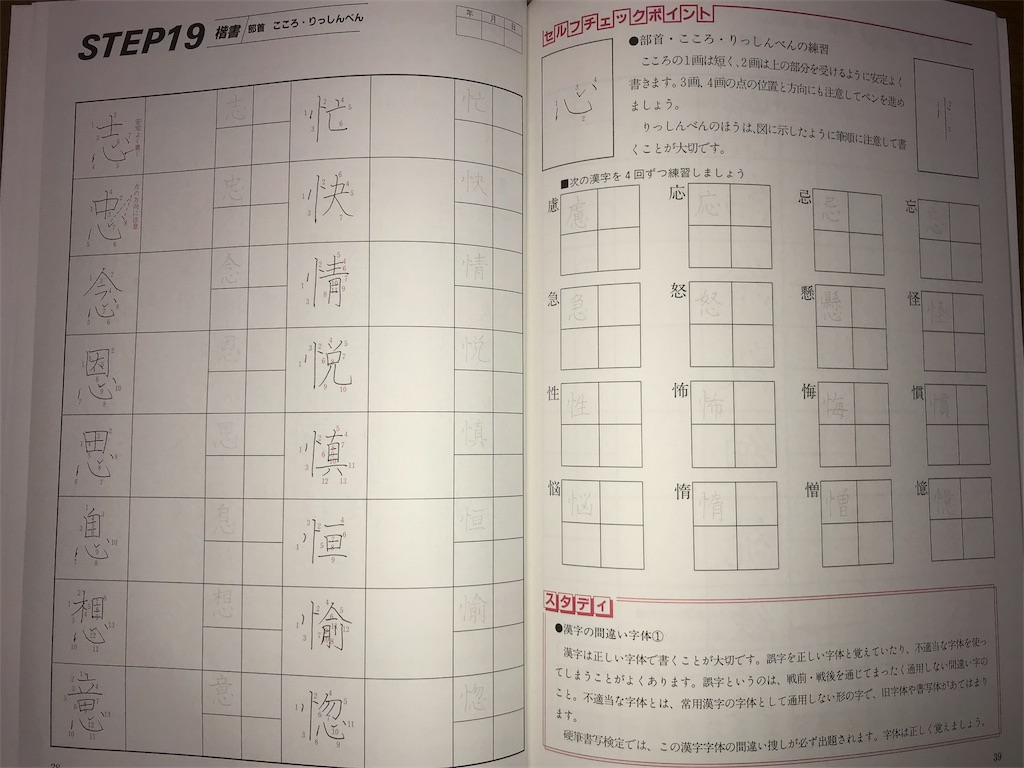 STEP19 楷書 部首 こころ・りっしんべん
年 月 日
志 志 忙 忙
忠 忠 快 快
念 念 情 情
恩 恩 悦 悦
思 思 慎 慎
息 息 恒 恒
想 想 愉 愉
意 意 惚 惚
38
セルフチェックポイント
●部首・こころ・りっしんべんの練習
こころの1画は短く、2画は上の部分を受けるように安定よく
書きます。3画、4画の点の位置と方向にも注意してペンを進め
ましょう。
りっしんべんのほうは、図に示したように筆順に注意して書
くことが大切です。
心
忄
■次の漢字を4回ずつ練習しましょう
慮 慮 応 応 忌 忌 忘 忘
急 急 怒 怒 懸 懸 怪 怪
性 性 怖 怖 悔 悔 慣 慣
悩 悩 惰 惰 憎 憎 憶 憶
スタディ
●漢字の間違い字体①
漢字は正しい字体で書くことが大切です。誤字を正しい字体と覚えていたり、不適当な字体を使っ
てしまうことがよくあります。誤字というのは、戦前・戦後を通じてまったく通用しない間違い字の
こと。不適当な字体とは、常用漢字の字体として通用しない形の字で、旧字体や書写体があてはまり
ます。
硬筆書写検定では、この漢字字体の間違い捜しが必ず出題されます。字体は正しく覚えましょう。
39